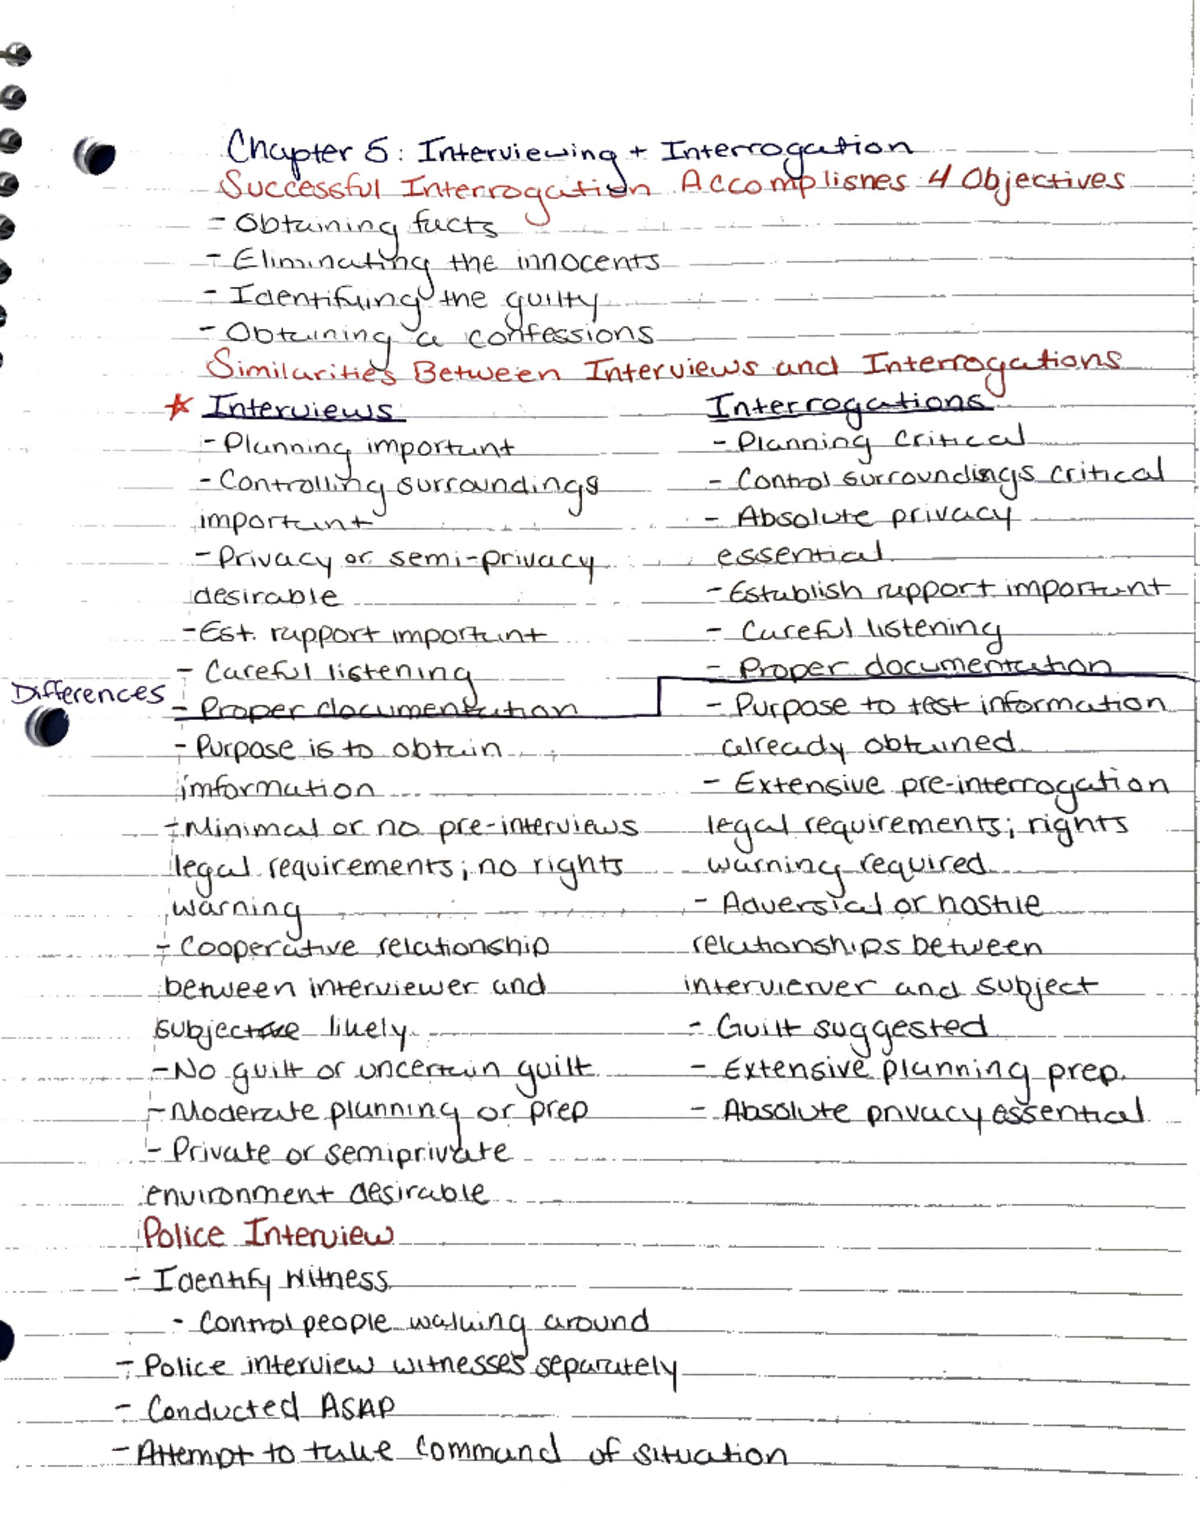 Chapter 5: Interviewing + Interrogation
Successful Interrogation Accomplishes 4 Objectives
- Obtaining facts
- Eliminating the innocents
- Identifying the guilty
- Obtaining a confessions
Similarities Between Interviews and Interrogations
★ Interviews
- Planning important
- Controlling surroundings
important
- Privacy or semi-privacy
desirable
- Est. rapport important
- Careful listening
- Proper documentation
Differences
- Purpose is to obtain
imformation
- Minimal or no pre-interviews
legal requirements; no rights
warning
- Cooperative relationship
between interviewer and
subject likely
- No guilt or uncertain guilt
- Moderate planning or prep
- Private or semiprivate
environment desirable
Interrogations
- Planning critical
- Control surroundings critical
- Absolute privacy
essential
- Establish rapport important
- Careful listening
- Proper documentation
- Purpose to test information
already obtained
- Extensive pre-interrogation
legal requirements; rights
warning required
- Adversial or hostile
relationships between
intervierver and subject
- Guilt suggested
- Extensive planning prep.
- Absolute privacy essential
Police Interview
- Identify witness
- Control people walking around
- Police interview witnesses separately
- Conducted ASAP
- Attempt to take command of situation